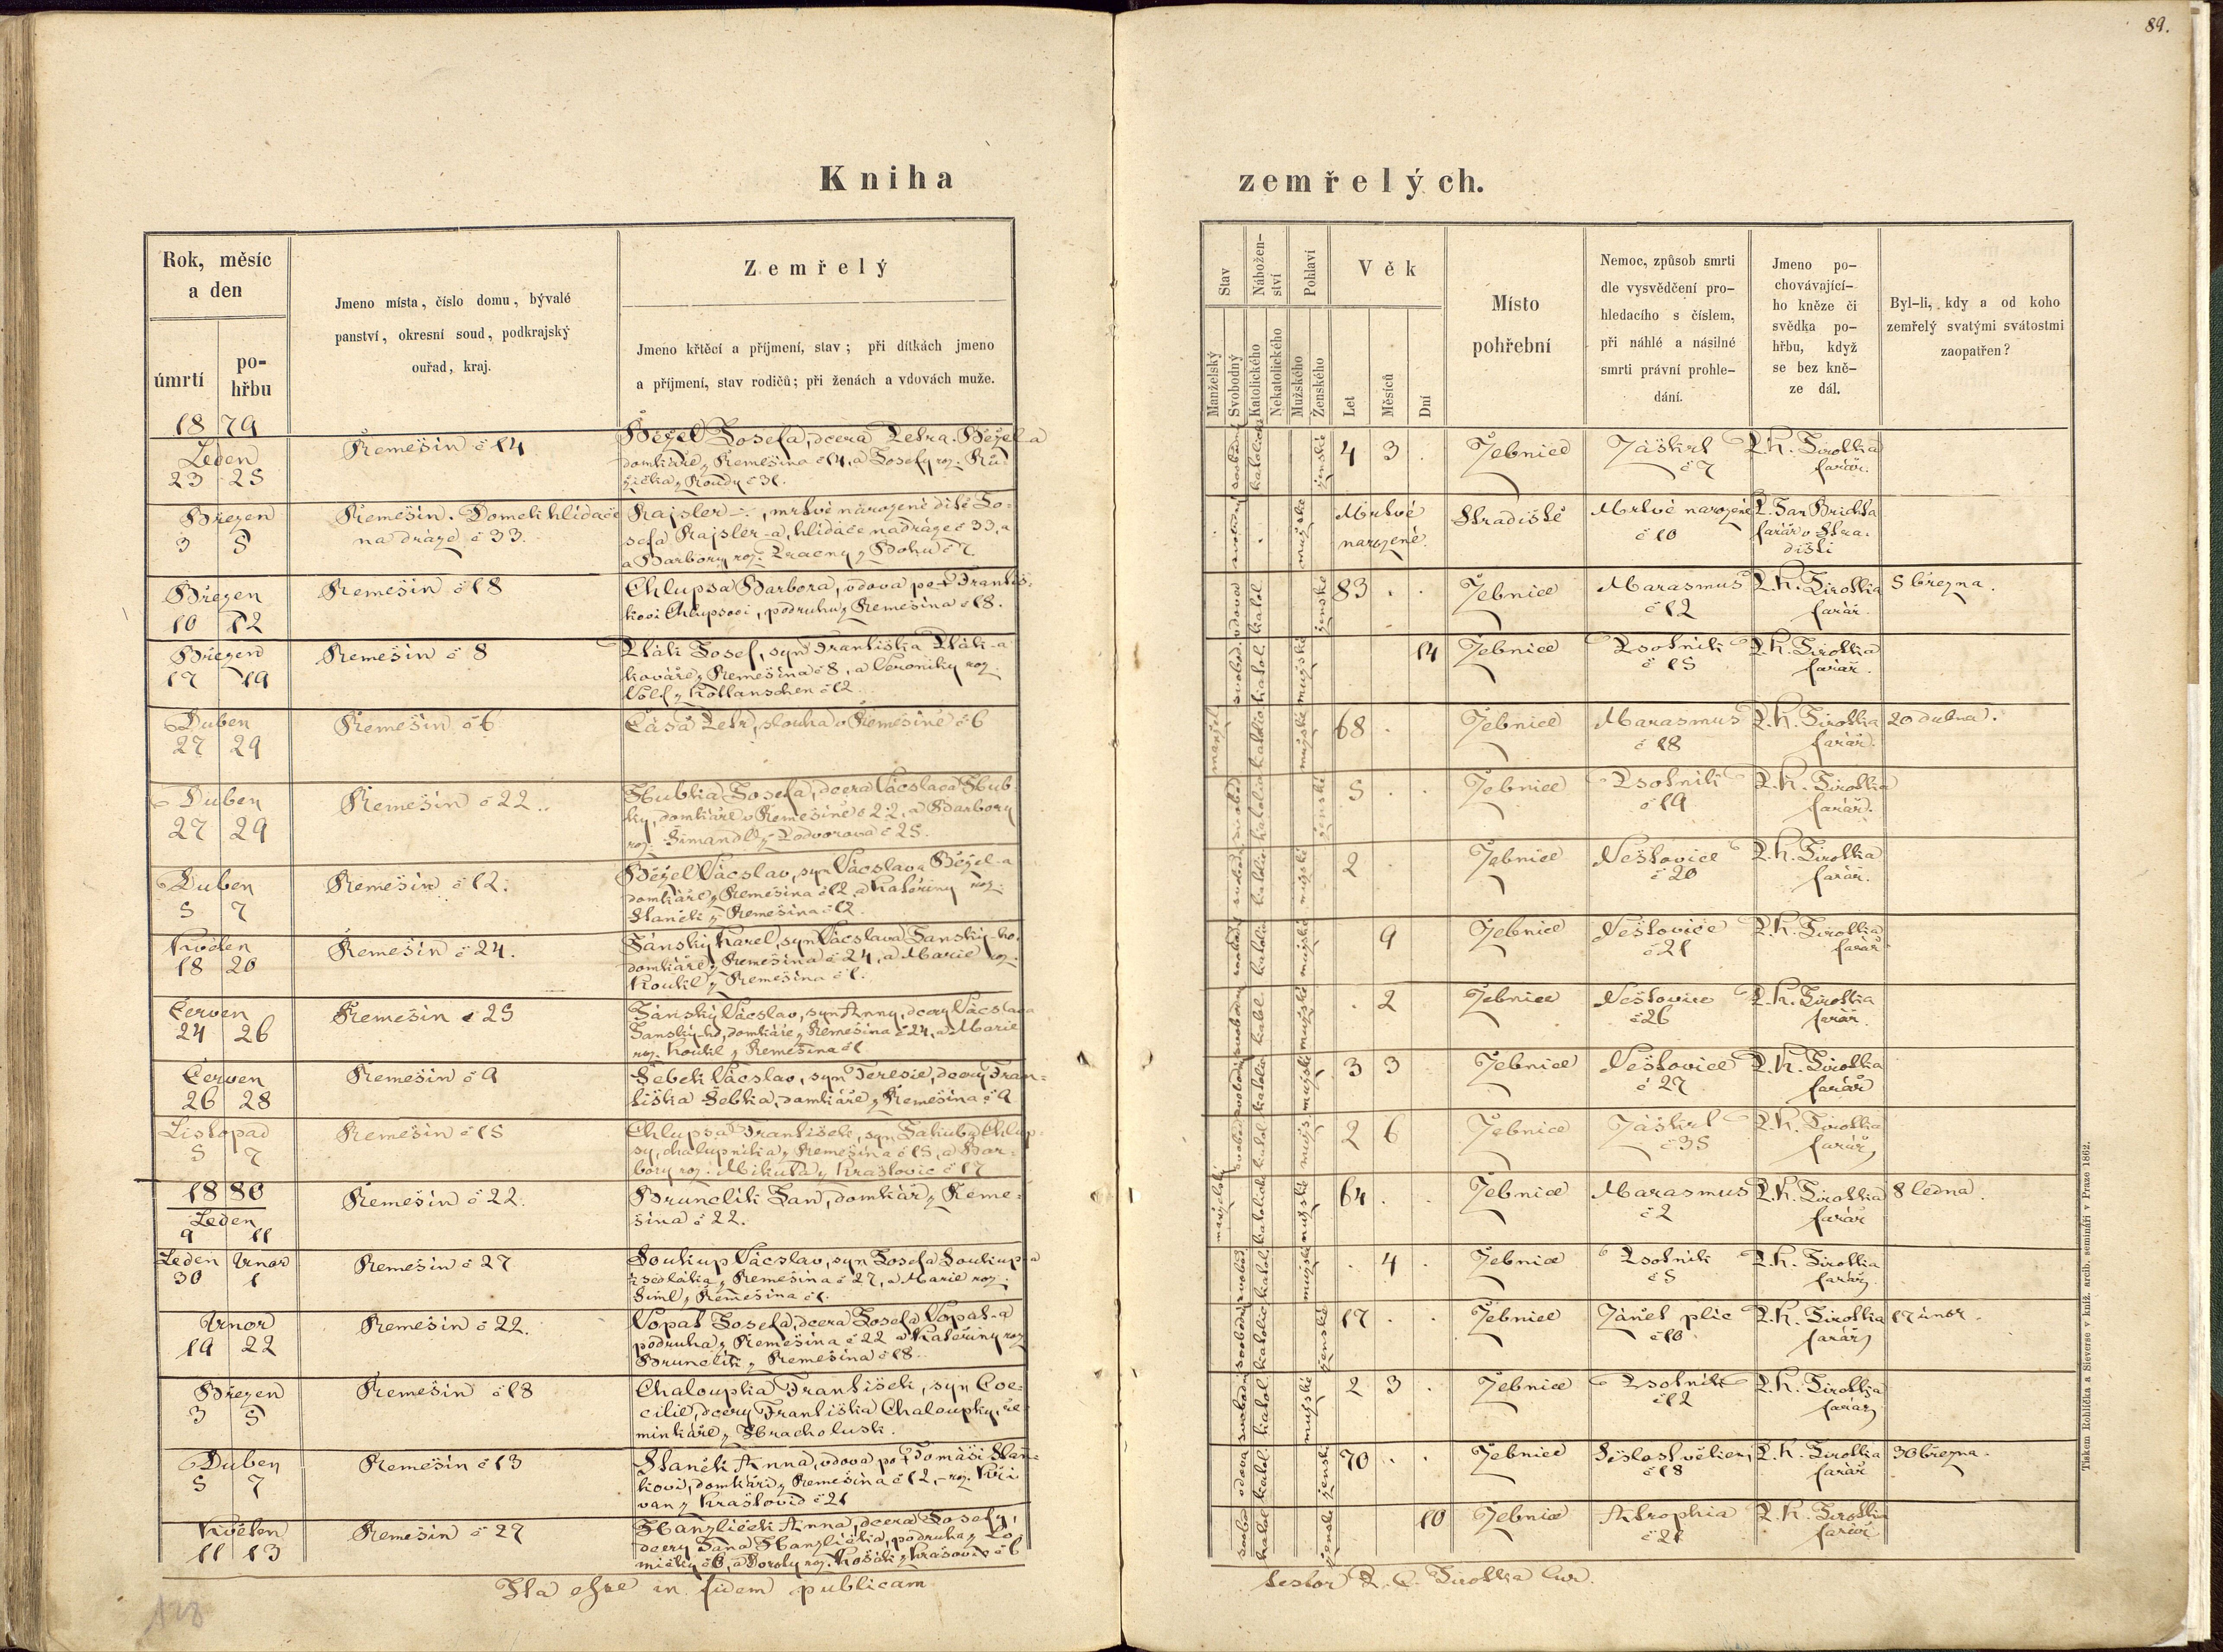 89.
Kniha
zemřelých.
Rok, měsíc
a den
úmrtí
po-
hřbu
Jmeno místa, číslo domu, bývalé
panství, okresní soud, podkrajský
ouřad, kraj.
Zemřelý
Jmeno křtěcí a příjmení, stav; při dítkách jmeno
a příjmení, stav rodičů; při ženách a vdovách muže.
Stav
Manželský
Svobodný
Nábožen-
ství
Katolického
Nekatolického
Pohlaví
Mužského
Ženského
Věk
Let
Měsíců
Dní
Místo
pohřební
Nemoc, způsob smrti
dle vysvědčení pro-
hledacího s číslem,
při náhlé a násilné
smrti právní prohle-
dání.
Jmeno po-
chovávající-
ho kněze či
svědka po-
hřbu, když
se bez kně-
ze dál.
Byl-li, kdy a od koho
zemřelý svatými svátostmi
zaopatřen?
1879
Leden
23 25
Řemešín č 14
Béžel Josefa, dcera Petra Béžel-a
domkáře z Řemešína č 14, a Josefy roz. Rů-
žička z Koudy č 31.
svobodný katolick ženské 4 3 Jebnice Záškrt P. K. Sirotka
č 7 farář.
Březen
3 5
Řemešín. Domek hlídače
na dráze č 33.
Rajsler —, mrtvě narozené dítě Jo-
sefa Rajsler-a, hlídače na dráze č 33, a
a Barbory roz. z Bohu č 7
mužské Mrtvě Hradiště Mrtvě narozené P. Jan Brichta
narozené. č 10 farář v Hra-
dišti
Březen
10 12
Řemešín č 18
Chlupsa Barbora, vdova po † Františ-
kovi Chlupsovi, podruhu z Řemešína č 18.
vdova katol. ženské 83 Jebnice Marasmus P. K. Sirotka 5 března.
č 12 farář.
Březen
17 19
Řemešín č 8
Pták Josef, syn Františka Pták-a
kováře z Řemešína č 8, a Veroniky roz.
Völf z Kottanschen č 12.
svobod. katol. mužské 14 Jebnice Psotník P. K. Sirotka
č 15 farář.
Duben
27 29
Řemešín č 6
Čása Petr, slouha v Řemešíně č 6
manžel. katolic mužské 68 Jebnice Marasmus P. K. Sirotka 20 dubna.
č 18 farář.
Duben
27 29
Řemešín č 22.
Hubka Josefa, dcera Vácslava Hub-
ky, domkáře v Řemešíně č 22, a Barbory
roz. Šimandl z Podvorova č 25.
svobod katolic ženské 5 Jebnice Psotník P. K. Sirotka
č 19 farář.
Duben
5 7
Řemešín č 12.
Béžel Vácslav, syn Vácslava Béžel-a
domkáře z Řemešína č 12, a Kateřiny roz.
Staněk z Řemešína č 12.
svobod. katolic mužské 2 Jebnice Neštovice P. K. Sirotka
č 20 farář.
Květen
18 20
Řemešín č 24.
Jánský Karel, syn Vácslava Janský-ho,
domkáře z Řemešína č 24, a Marie roz.
Koukl z Řemešína č 1.
svobod katolic mužské 9 Jebnice Neštovice P. K. Sirotka
č 21 farář
Červen
24 26
Řemešín č 25
Jánský Vácslav, syn Anny, dcery Vácslava
Janský-ho, domkáře z Řemešína č 24, a Marie
roz. Koukl z Řemešína č 1
svobodný katol. mužské 2 Jebnice Neštovice P. K. Sirotka
č 26 farář.
Červen
26 28
Řemešín č 9
Šebek Vácslav, syn Teresie, dcery Fran-
tiška Šebka, domkáře z Řemešína č 9
svobodný katolic mužské 3 3 Jebnice Neštovice P. K. Sirotka
č 27 farář
Listopad
5 7
Řemešín č 15
Chlupsa František, syn Jakuba Chlup-
sy, chalupníka z Řemešína č 15, a Bar-
bory roz. Mikuta z Kraštovic č 17
svobod katol. mužs. 2 6 Jebnice Záškrt P. K. Sirotka
č 35 farář
1880
Leden
9 11
Řemešín č 22.
Brunclík Jan, domkář z Řeme-
šína č 22.
manželský katolick mužské 64 Jebnice Marasmus P. K. Sirotka 8 ledna.
č 2 farář
Leden Únor
30 1
Řemešín č 27
Soukup Vácslav, syn Josefa Soukup-a
sedláka z Řemešína č 27, a Marie roz.
Siml z Řemešína č 1.
svobod katol. mužské 4 Jebnice Psotník P. K. Sirotka
č 5 farář
Únor
19 22
Řemešín č 22.
Vopat Josefa, dcera Josefa Vopat-a
podruha z Řemešína č 22 a Kateřiny roz
Brunclík z Řemešína č 18.
svobodná katolic ženské 17 Jebnice Zánět plic P. K. Sirotka 17 únor.
č 10 farář
Březen
3 5
Řemešín č 18
Chaloupka František, syn Coe-
cilie, dcery Františka Chaloupky,
minkáře z Hracholusk.
svobodný katol. mužské 2 3 Jebnice Psotník P. K. Sirotka
č 12 farář
Duben
5 7
Řemešín č 13
Staněk Anna, vdova po † Tomáši Stan-
kovi, domkáři z Řemešína č 12, roz. Kři-
van z Kraštovic č 21
vdova katol. ženské 70 Jebnice Sešlost věkem P. K. Sirotka 30 března.
č 18 farář
Květen
11 13
Řemešín č 27
Hanzlíček Anna, dcera Josefy,
dcery Jana Hanzlíčka, podruha z Lo-
mičky č 6, a Doroty roz. Košák z Krašovic č 6
svobod katol ženské 10 Jebnice Atrophia P. K. Sirotka
č 21 farář
Ita esse in fidem publicam
testor P. C. Sirotka Cur.
128
Tiskem Rohlíčka a Sieverse v kníž. arcib. semináři v Praze 1862.